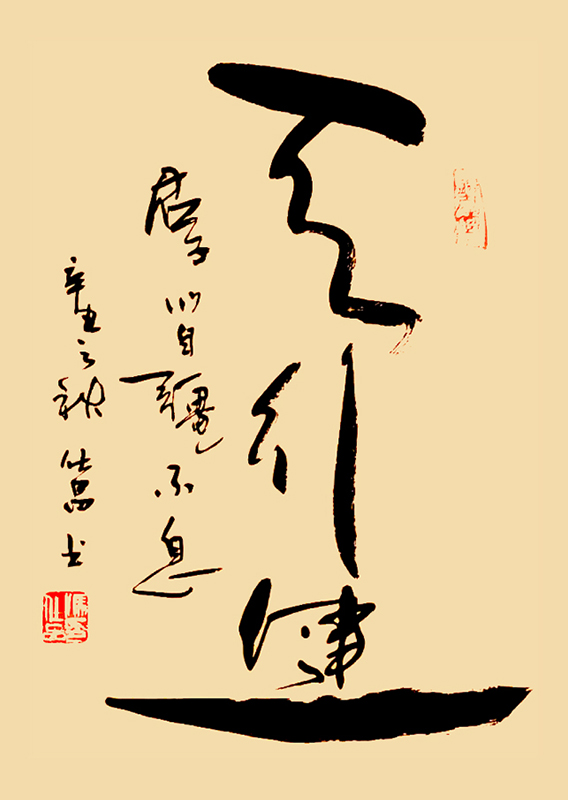 天行健
君子以自彊不息
辛丑之秋
书